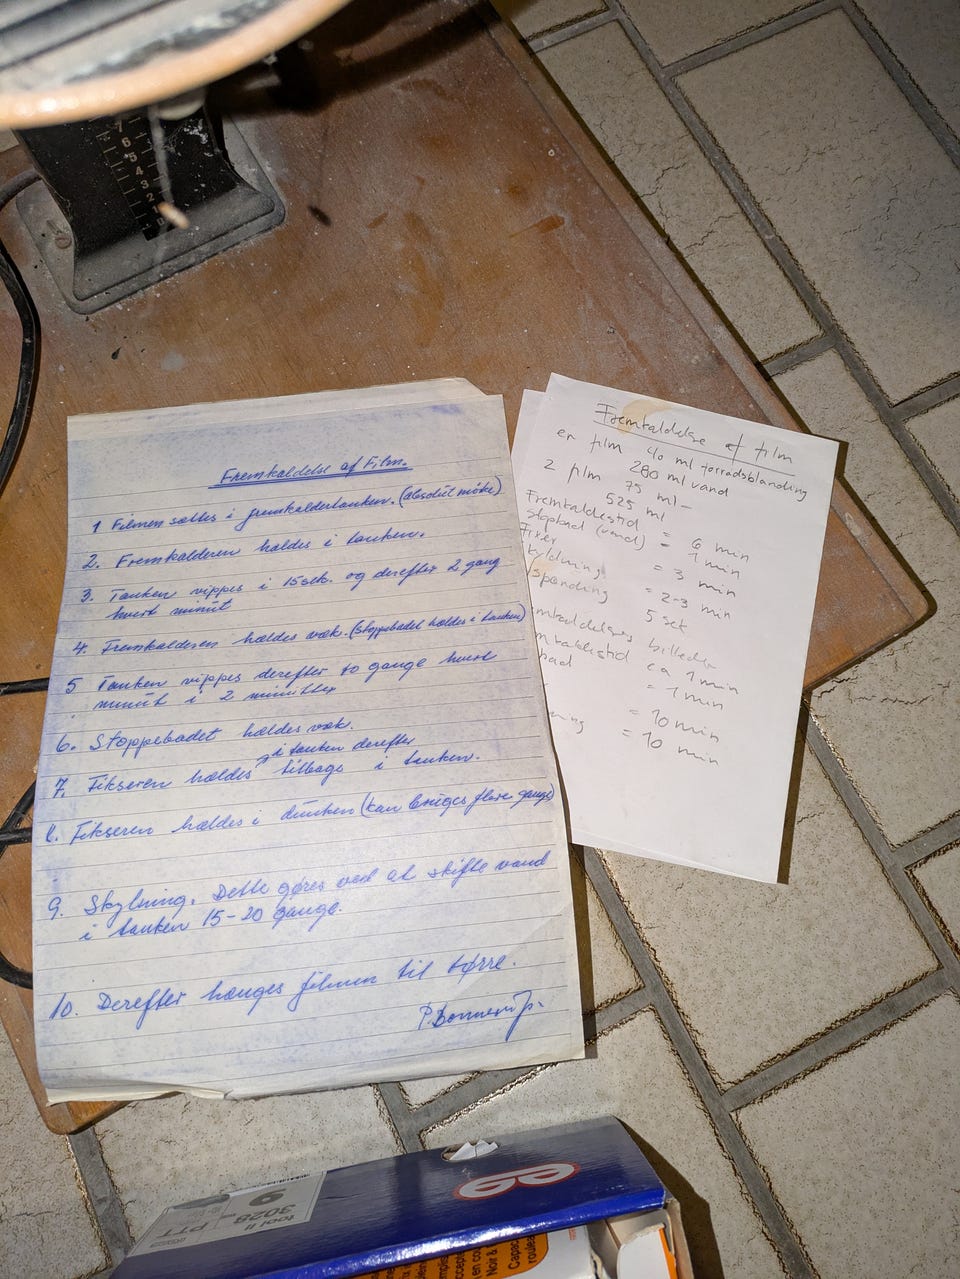 7
6
5
4
3
2
Fremkaldelse af Film.
1 Filmen sættes i fremkaldertanken. (absolut mørke)
2. Fremkalderen hældes i tanken.
3. Tanken vippes i 15 sek. og derefter 2 gang
hvert minut
4. Fremkalderen hældes væk. (stoppebadet hældes i tanken)
5 Tanken vippes derefter 10 gange hvert
minut i 2 minutter
6. Stoppebadet hældes væk.
i tanken derefter
7. Fikseren hældes tilbage i tanken.
8. Fikseren hældes i dunken (kan bruges flere gange)
9. Skylning. Dette gøres ved at skifte vand
i tanken 15-20 gange.
10. Derefter hænges filmen til tørre.
Fremkaldelse af film
en film 40 ml forrådsblanding
280 ml vand
2 film 75 ml -
525 ml
Fremkaldestid = 6 min
Stopbad (vand) = 1 min
Fixer = 3 min
kylning = 2-3 min
spænding 5 sek
billeder
ca 1 min
bad = 1 min
= 10 min
ning = 10 min
tool
3028
PTT
9
Noir &
Capac
roulea